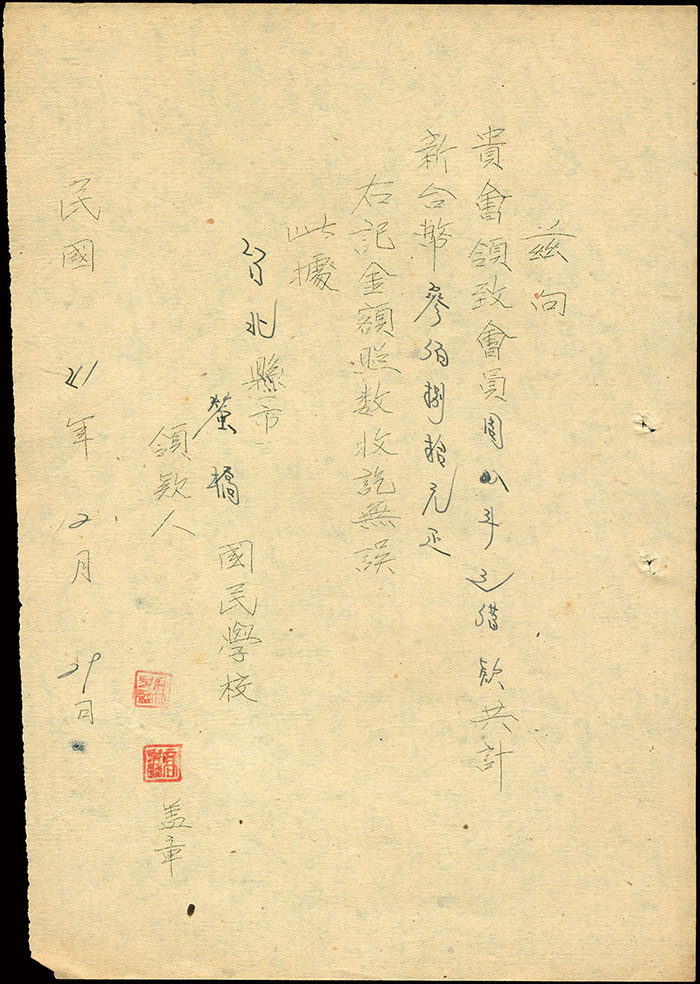 茲向
貴會領致會員周八斗之借款共計
新台幣參佰捌拾元正
右記金額照数收訖無誤
此據
台北縣市
螢橋國民學校
領款人
盖章
民國41年12月29日